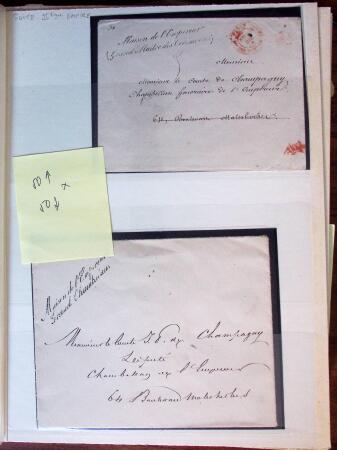 Maison de l'Empereur
(Grand Maître des Cérémonies)
Monsieur
Monsieur le Comte de Champagny
Chambellan honoraire de l'Empereur
64, Boulevard Malesherbes
50 ↑
x
50 ↓
Maison de l'Empereur
Grand Chambellan
Monsieur le Comte de Champagny
Député
Chambellan de l'Empereur
64 Boulevard Malesherbes